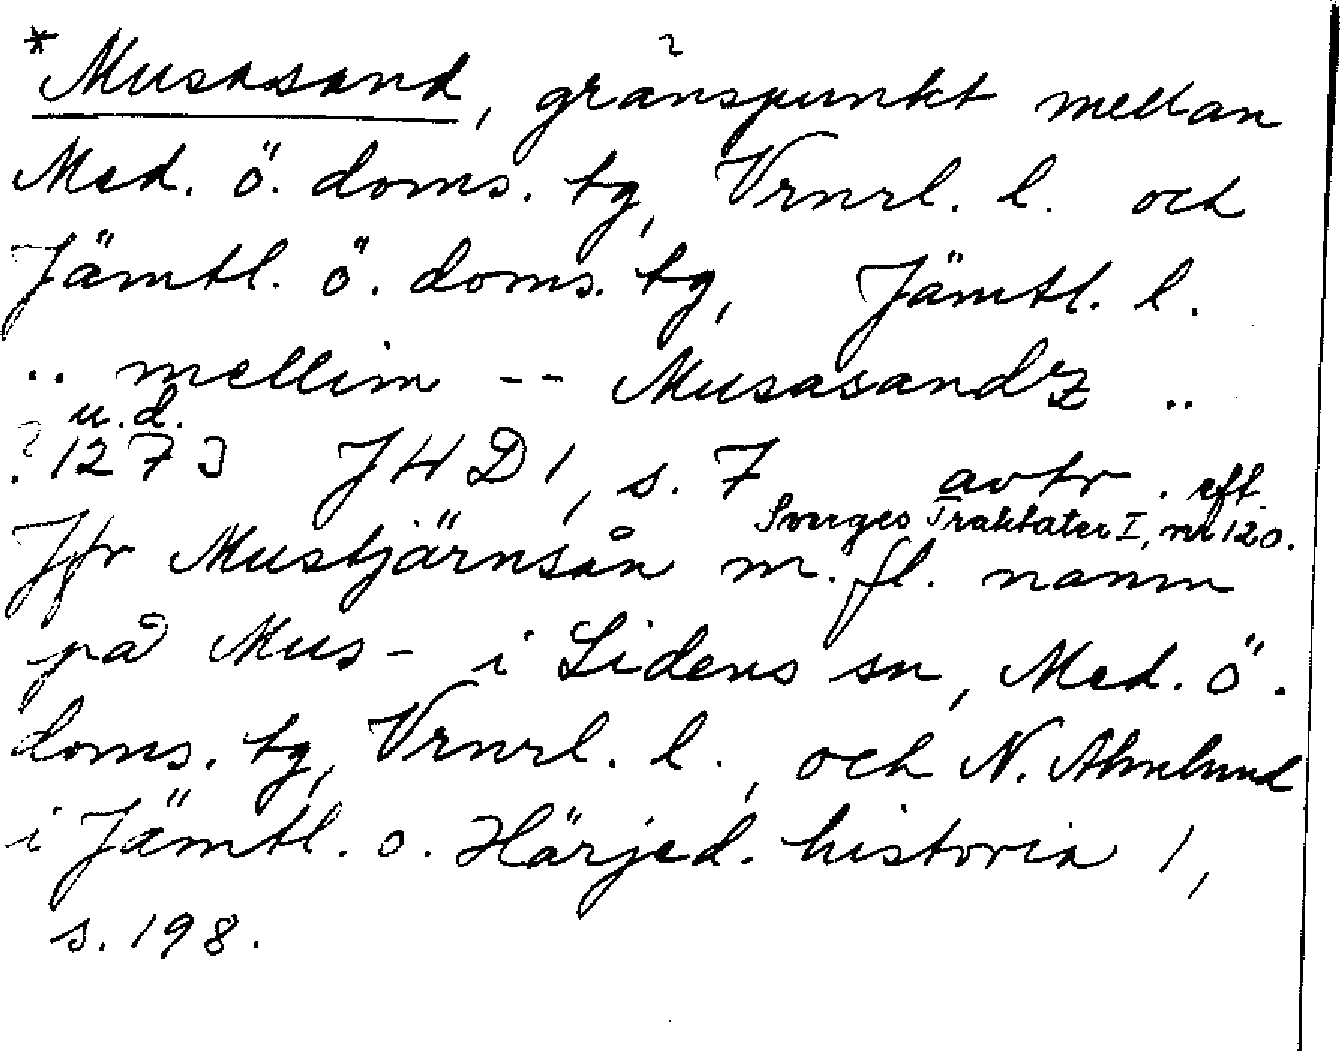 *Musasand, gränspunkt mellan
Med. ö. doms. tg, Vrnrl. l. och
Jämtl. ö. doms. tg, Jämtl. l.
.. mellim -- Musasandz ..
u.d.
?1273 JHD 1, s. 7 avtr. eft.
Sverges Traktater I, nr 120.
Jfr Mustjärnsån m. fl. namn
på Mus- i Lidens sn, Med. ö.
doms. tg, Vrnrl. l., och N. Ahnlund
i Jämtl. o. Härjed. historia 1,
s. 198.